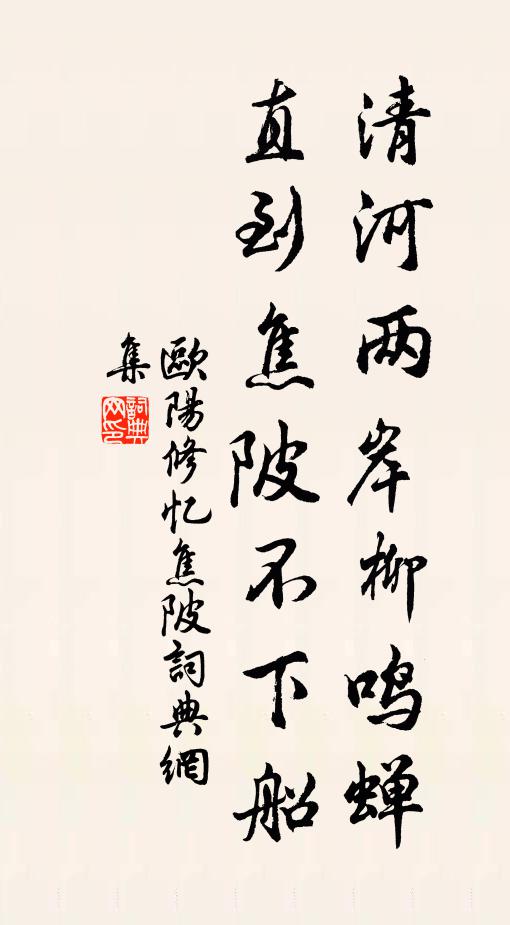 清河两岸柳鸣蝉
直到焦陂不下船
歐陽修忆焦陂詞典網
集
詞典
网印